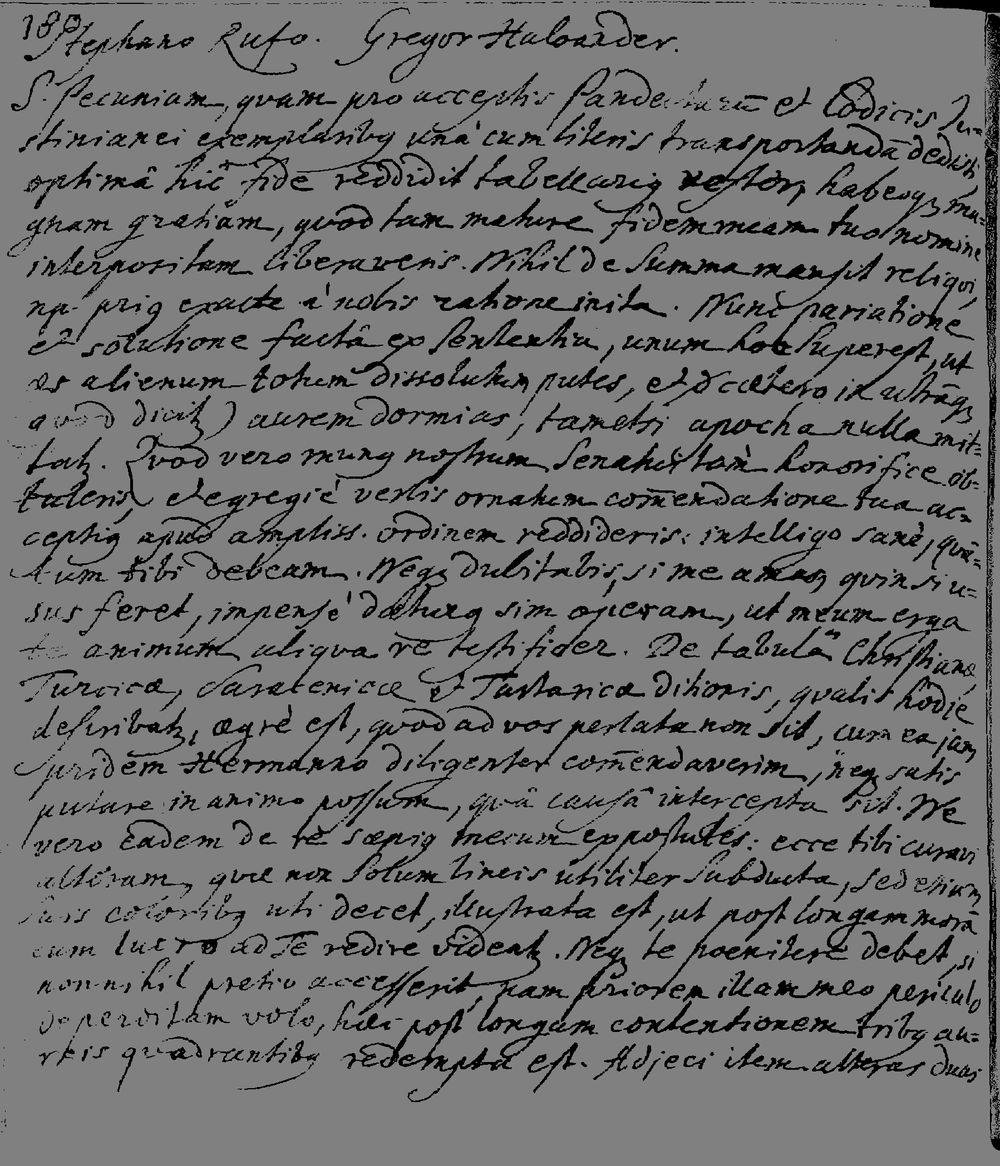 180
Stephano Rufo. Gregor Haloander.
S. Pecuniam, quam pro acceptis Pandectarū et Codicis Ju-
stinianei exemplaribq unà cum literis transportandā dedisti,
optimâ hîc fide reddidit tabellariq vester, habeoqz ma-
gnam gratiam, quòd tam mature fidem meam tuo nomine
interpositam liberaveris. Nihil de summa mansit reliqui,
priq exacte à nobis ratione inita. Nunc pariatione
et solutione factâ ex sententia, unum hoc superest, ut
æs alienum totum dissolutum putes, et de cætero in utrāqz
quod dicitz) aurem dormias, tametsi apocha nulla mit-
tatz. Quod vero munq nostrum Senatui tàm honorifice ob-
tuleris, et egregiè verbis ornatum com̄endatione tua ac-
ceptiq apud ampliss. ordinem reddideris: intelligo sanè, quā-
tum tibi debeam. Neqz dubitabis, si me amas, quin si u-
sus feret, impensè daturq sim operam, ut meum erga
te animum aliqua re testificer. De tabulâ Christianæ,
Turcicæ, Saracenicæ et Tartaricæ ditionis, qualis hodie
describatz, ægrè est, quod ad vos perlata non sit, cum ea jam
pridem Hermanno diligenter com̄endaverim, neqz satis
putare in animo possum, quâ causâ intercepta sit. Ne
vero eadem de re sæpiq mecum expostules: ecce tibi curavi
alteram, quæ non solum lineis utiliter subducta, sed etiam
suis coloribq uti decet, illustrata est, ut post longam morā
cum lucro ad Te redire videatz. Neqz te poenitere debet, si
nonnihil pretio accesserit, nam priorem illam meo periculo
deperditam volo, hæc post longam contentionem tribq au-
reis quadrantibq redempta est. Adjeci item alteras duas